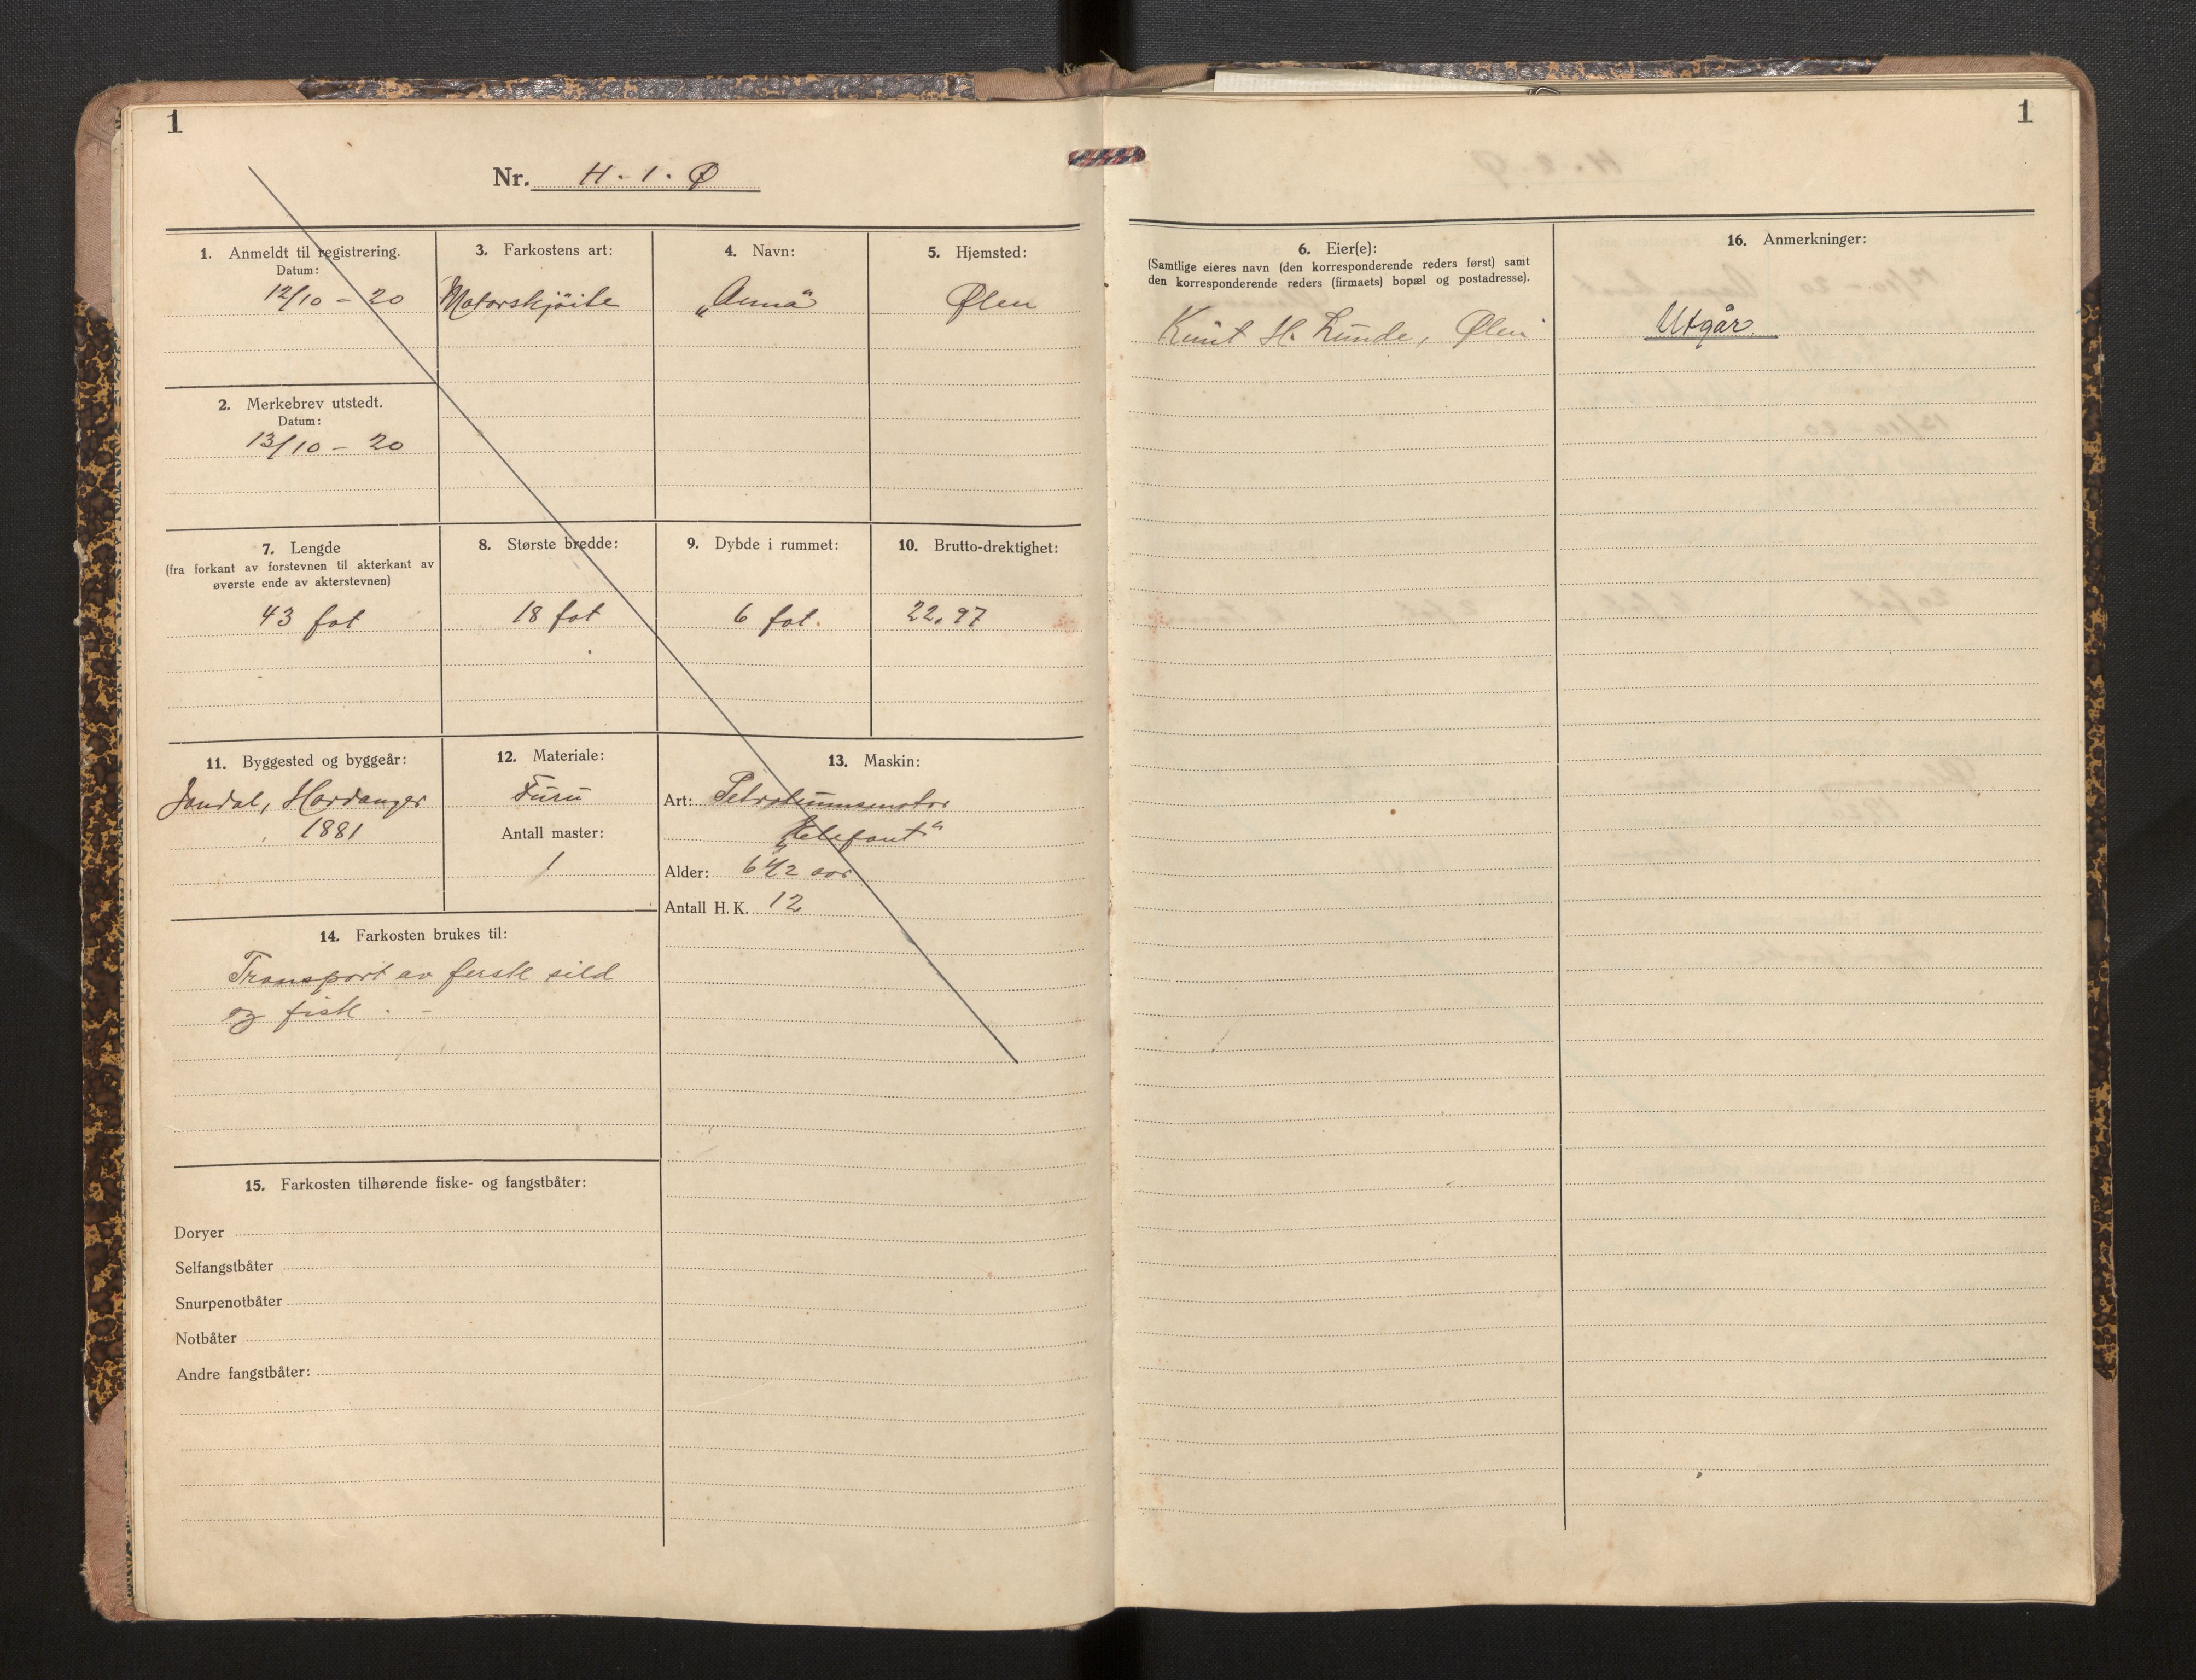 1
Nr. H. 1. Ø
1. Anmeldt til registrering.
Datum:
12/10 - 20
2. Merkebrev utstedt.
Datum:
13/10 - 20
3. Farkostens art:
Motorskjöite
4. Navn:
„Anna"
5. Hjemsted:
Ølen
7. Lengde
(fra forkant av forstevnen til akterkant av
øverste ende av akterstevnen)
43 fot
8. Største bredde:
18 fot
9. Dybde i rummet:
6 fot.
10. Brutto-drektighet:
22.97
11. Byggested og byggeår:
Jondal, Hardanger
1881
12. Materiale:
Furu
Antall master:
1
13. Maskin:
Art: Petroleumsmotor
„Elefant"
Alder: 6 1/2 aar
Antall H. K. 12
14. Farkosten brukes til:
Transport av fersk sild
og fisk. -
15. Farkosten tilhørende fiske- og fangstbåter:
Doryer
Selfangstbåter
Snurpenotbåter
Notbåter
Andre fangstbåter:
1
6. Eier(e):
(Samtlige eieres navn (den korresponderende reders først) samt
den korresponderende reders (firmaets) bopæl og postadresse).
Knut H. Lunde, Ølen
16. Anmerkninger:
Utgår